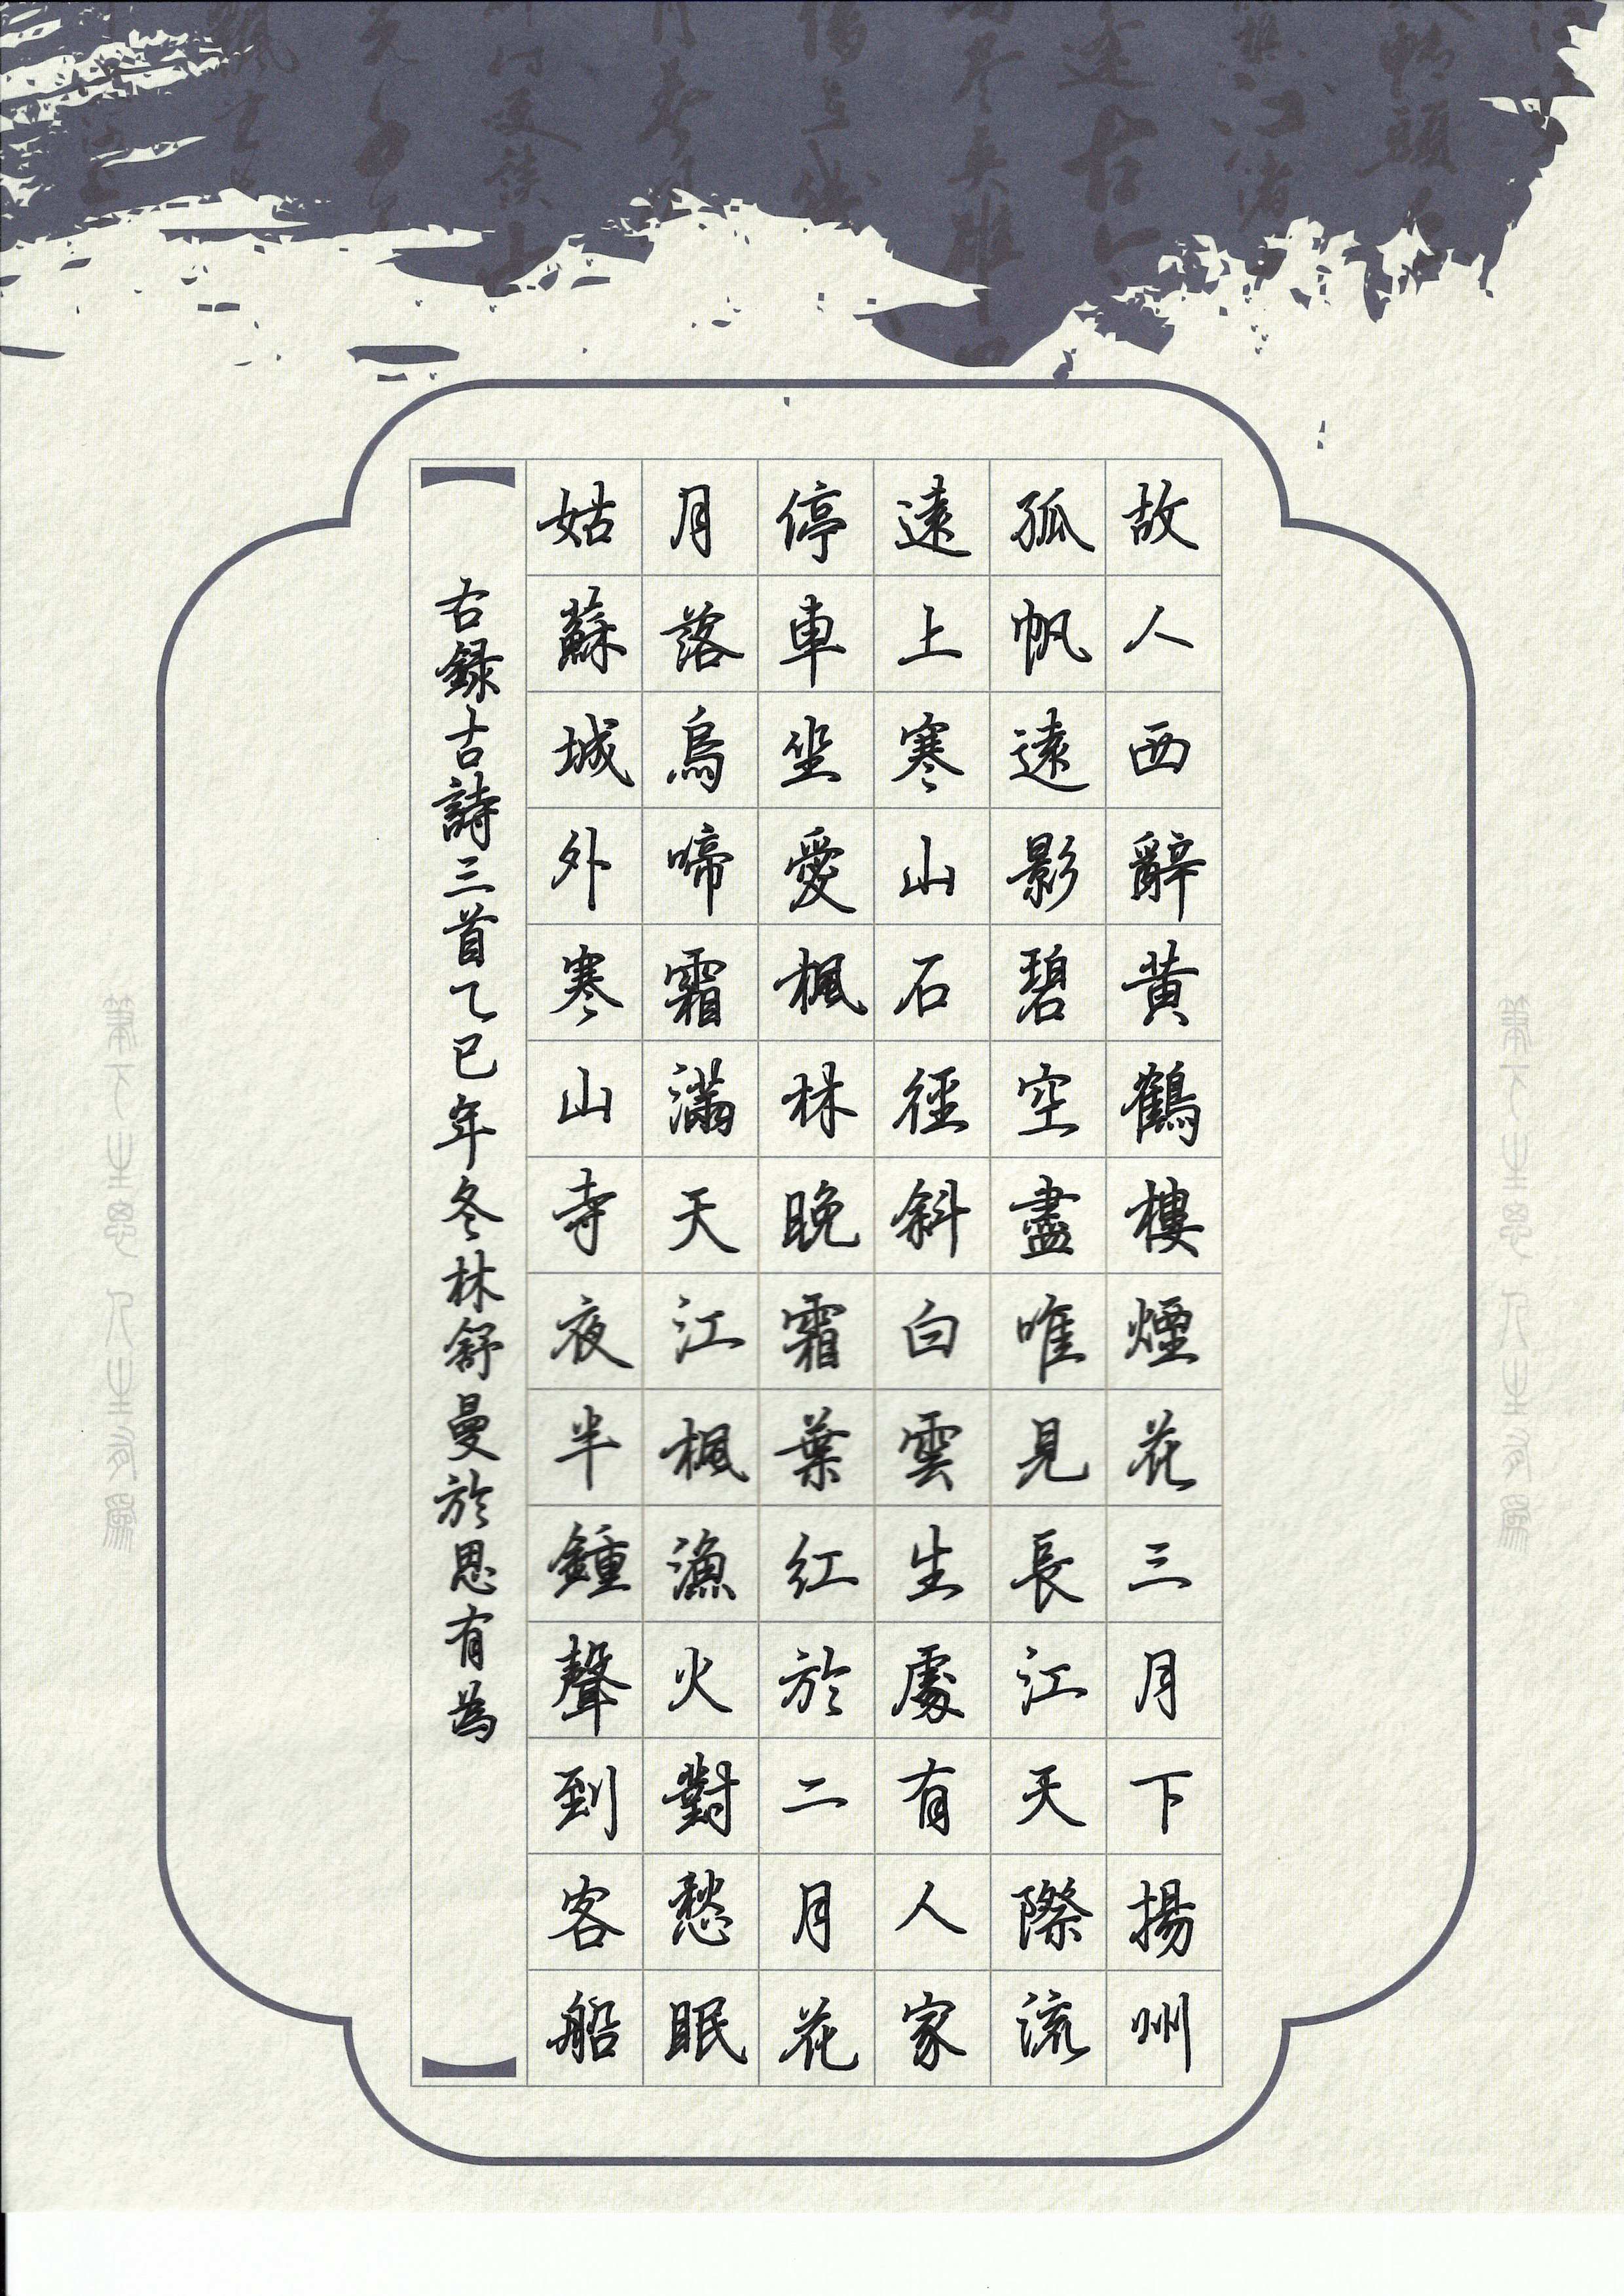 故人西辭黃鶴樓煙花三月下揚州
孤帆遠影碧空盡唯見長江天際流
遠上寒山石徑斜白雲生處有人家
停車坐愛楓林晚霜葉紅於二月花
月落烏啼霜滿天江楓漁火對愁眠
姑蘇城外寒山寺夜半鍾聲到客船
右録古詩三首乙巳年冬林舒曼於思有為